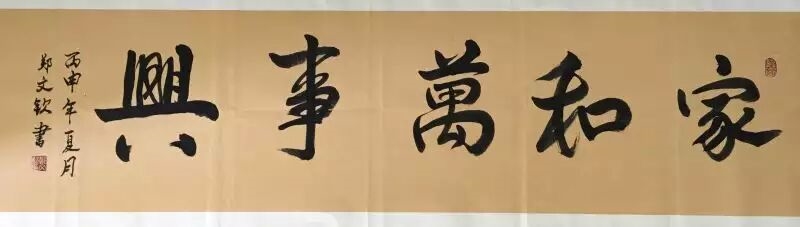 家和萬事興
丙申年夏月
郑文钦書